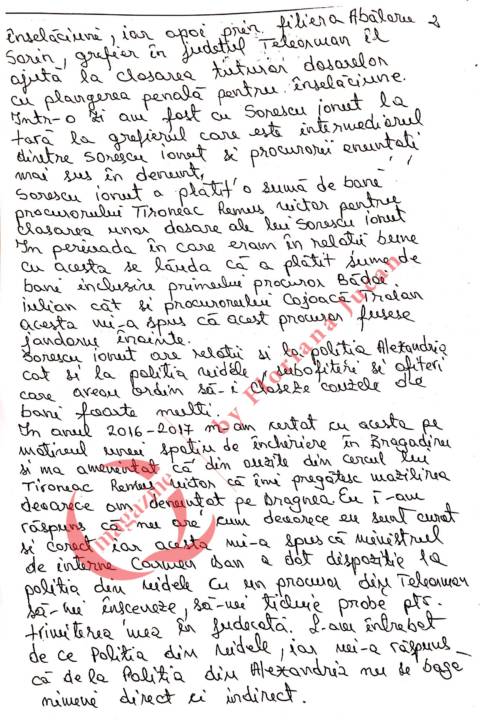 înselăciune, iar apoi prin filiera Abălaru
Sorin, grefier în județul Teleorman îl
ajută la closarea tuturor dosarelor
cu plangerea penală pentru înselăciune.
Intr-o zi am fost cu Sorescu ionut la
țară la grefierul care este intermediarul
dintre Sorescu ionut si procurorii enuntati
mai sus în denunt.
Sorescu ionut a platit o sumă de bani
procurorului Tironeac Remus victor pentru
closarea unor dosare ale lui Sorescu ionut
In perioada în care eram în relatii bune
cu acesta se lăuda că a plătit sume de
bani inclusire primului procuror Bădoi
iulian cât si procurorului Cojoacă Traian
acesta mi-a spus că acest procuror fusese
jandarm înainte.
Sorescu ionut are relatii si la politia Alexandria
cat si la politia videle, subofiteri si ofiteri
care aveau ordin să-i closeze cauzele de
bani foarte multi.
In anul 2016-2017 m-am certat cu acesta pe
motivul unui spatiu de închiriere în Bragadiru
si ma amenintat că din auzite din cercul lui
Tironeac Remus victor că îmi pregătesc mazilirea
deoarece am denuntat pe Dragnea Eu i-am
răspuns că nu are cum deoarece eu sunt curat
si corect iar acesta mi-a spus că ministrul
de interne Carmen Dan a dat dispozitie la
politia din videle cu un procuror din Teleorman
să-mi însceneze, să-mi ticluie probe ptr.
trimiterea mea în judecată. L-am întrebat
de ce Politia din videle, iar mi-a răspuns
că de la Politia din Alexandria nu se bage
nimeni direct ci indirect.
magazine by Floriana Jucan